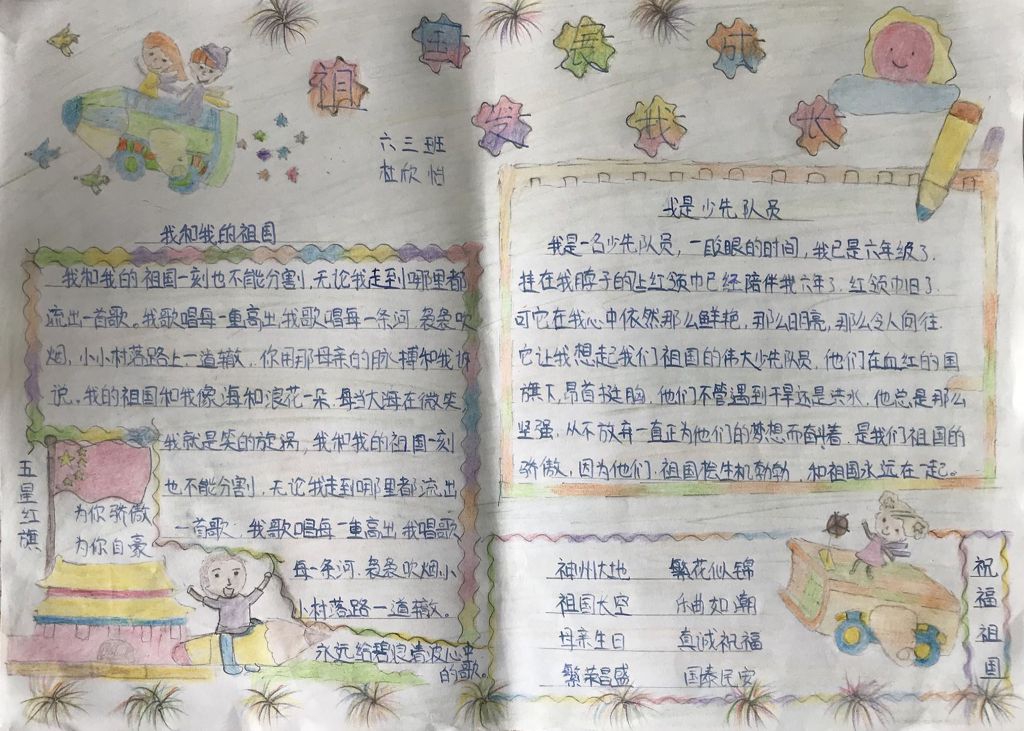 祖国发展我成长
六三班
杜欣怡
我和我的祖国
我和我的祖国一刻也不能分割,无论我走到哪里都
流出一首歌。我歌唱每一重高出,我歌唱每一条河,袅袅吹
烟,小小村落路上一道辙,你用那母亲的脉搏和我诉
说。我的祖国和我像海和浪花一朵,每当大海在微笑
我就是笑的旋涡,我和我的祖国一刻
也不能分割,无论我走到哪里都流出
一首歌,我歌唱每一重高出,我唱歌
每一条河,袅袅吹烟,小
小村落路一道辙。
永远给碧浪清波心中
的歌。
五星红旗
为你骄傲
为你自豪
我是少先队员
我是一名少先队员,一眨眼的时间,我已是六年级了.
挂在我脖子的上红领巾已经陪伴我六年了,红领巾旧了.
可它在我心中依然那么鲜艳,那么明亮,那么令人向往.
它让我想起我们祖国的伟大少先队员,他们在血红的国
旗下,昂首挺胸,他们不管遇到干旱还是洪水,他总是那么
坚强,从不放弃一直正为他们的梦想而奋斗着,是我们祖国的
骄傲,因为他们,祖国生机勃勃,和祖国永远在一起。
神州大地 繁花似锦
祖国长空 乐曲如潮
母亲生日 真诚祝福
繁荣昌盛 国泰民安
祝福祖国